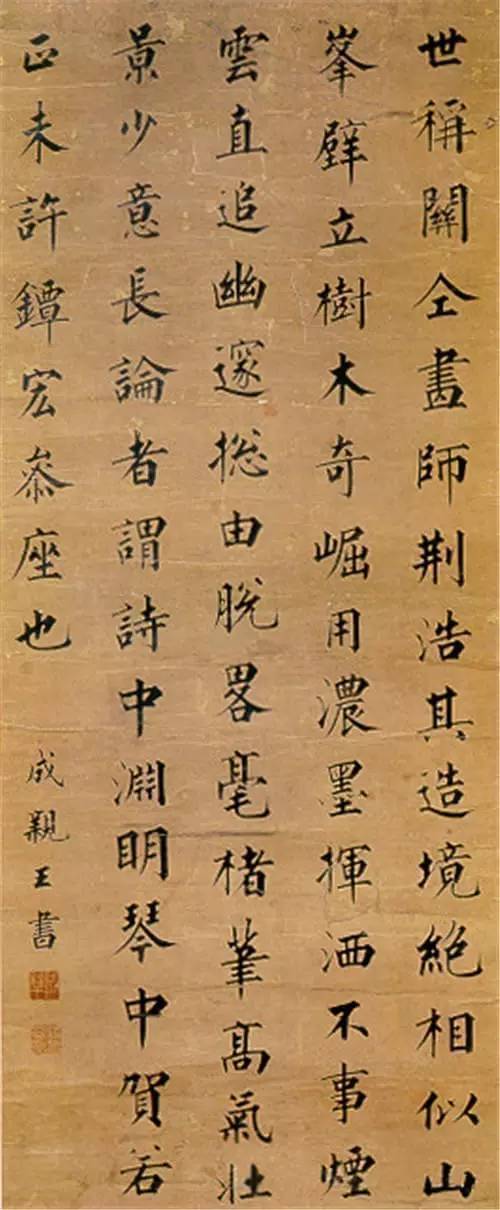 世稱關仝畫師荆浩其造境絶相似山
峯壁立樹木奇崛用濃墨揮洒不事煙
雲直追幽邃揔由脱畧毫楮筆高氣壯
景少意長論者謂詩中淵明琴中賀若
正未許鐔宏叅座也
成親王書